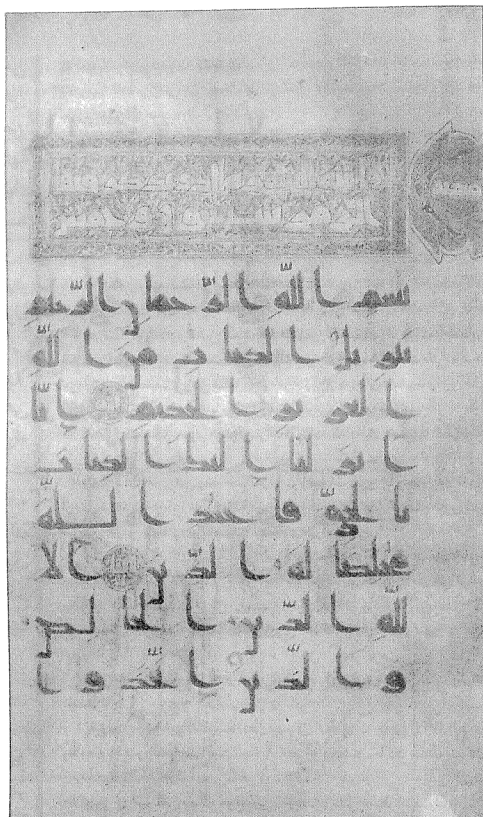 بسم الله الرحمن الرحيم
تنزيل الكتاب من الله
العزيز الحكيم إنا
أنزلنا إليك الكتاب
بالحق فاعبد الله
مخلصا له الدين ألا
لله الدين الخالص
والذين اتخذوا